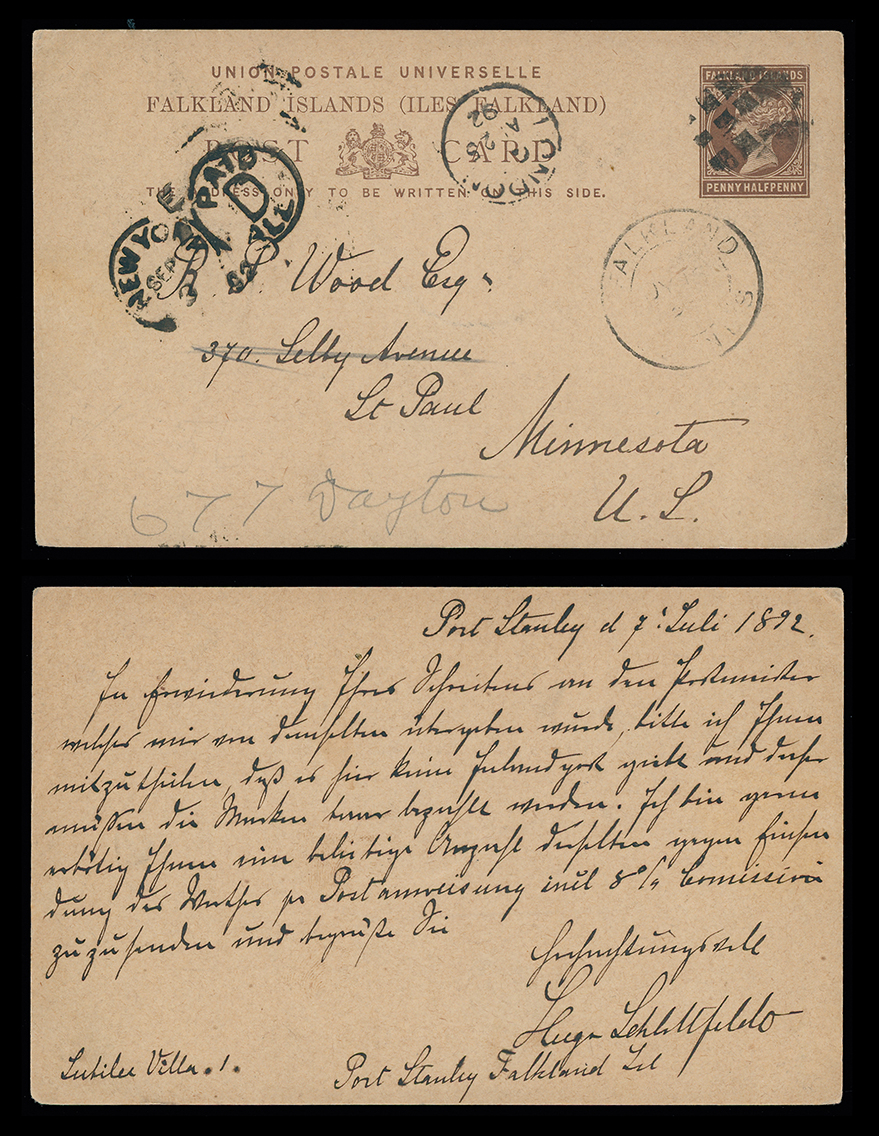 UNION POSTALE UNIVERSELLE
FALKLAND ISLANDS (ILES FALKLAND)
POST CARD
THE ADDRESS ONLY TO BE WRITTEN ON THIS SIDE.
FALKLAND ISLANDS
PENNY HALFPENNY
LONDON
AU 25
92
NEW YORK
SEP
92
PAID
D
ALL
FALKLAND ISL
Wood Esq.
370. Selby Avenue
St Paul
Minnesota
U. S.
677 Dayton
Port Stanley d 7. Juli 1892.
In Erwiederung Ihres Schreibens an den Postmeister
welches mir von demselben übergeben wurde, bitte ich Ihnen
mitzutheilen, daß es hier keine Inlandpost giebt und daher
müssen die Marken baar bezahlt werden. Ich bin gerne
erbötig Ihnen eine beliebige Anzahl derselben gegen Einsen
dung des Werthes per Postanweisung incl 8% Comission
zuzusenden und begrüße Sie
Hochachtungsvoll
Hugo Schlottfeldt
Jubilee Villa. 1.
Port Stanley Falkland Isl